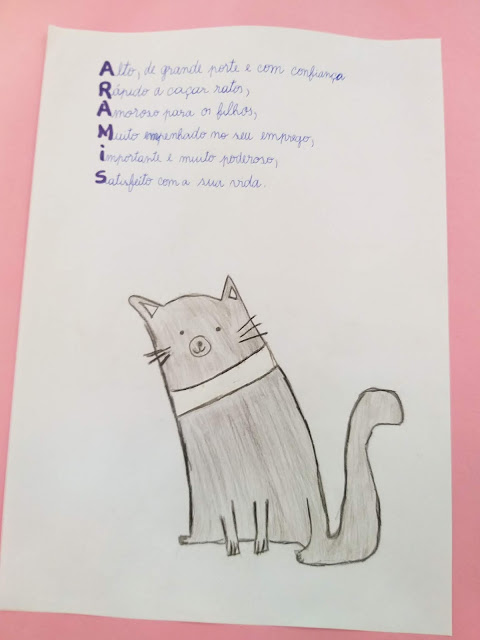 Alto, de grande porte e com confiança
Rápido a caçar ratos,
Amoroso para os filhos,
Muito empenhado no seu emprego,
importante e muito poderoso,
Satisfeito com a sua vida.